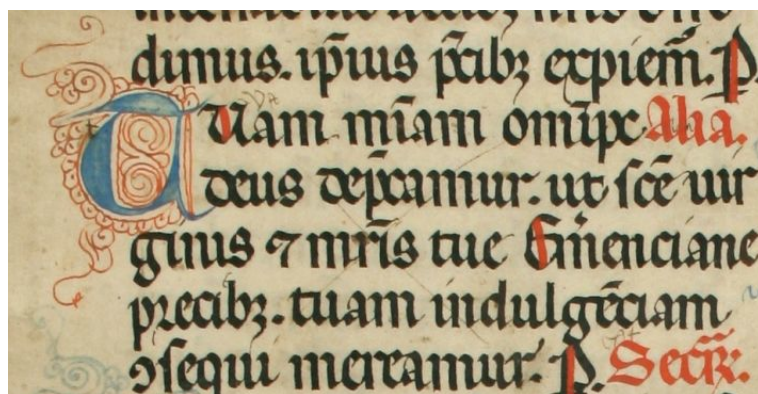 dimus. ip̄ius p̄cibꝫ expiem̄. P.
Tuam m̄iam om̄ipt Alia.
deus dep̄camur. ut sc̄e uir
ginis ⁊ mr̄is tue Em̄enciane
precibꝫ. tuam indulgēciam
ꝯsequi mereamur. P. Secr̄.